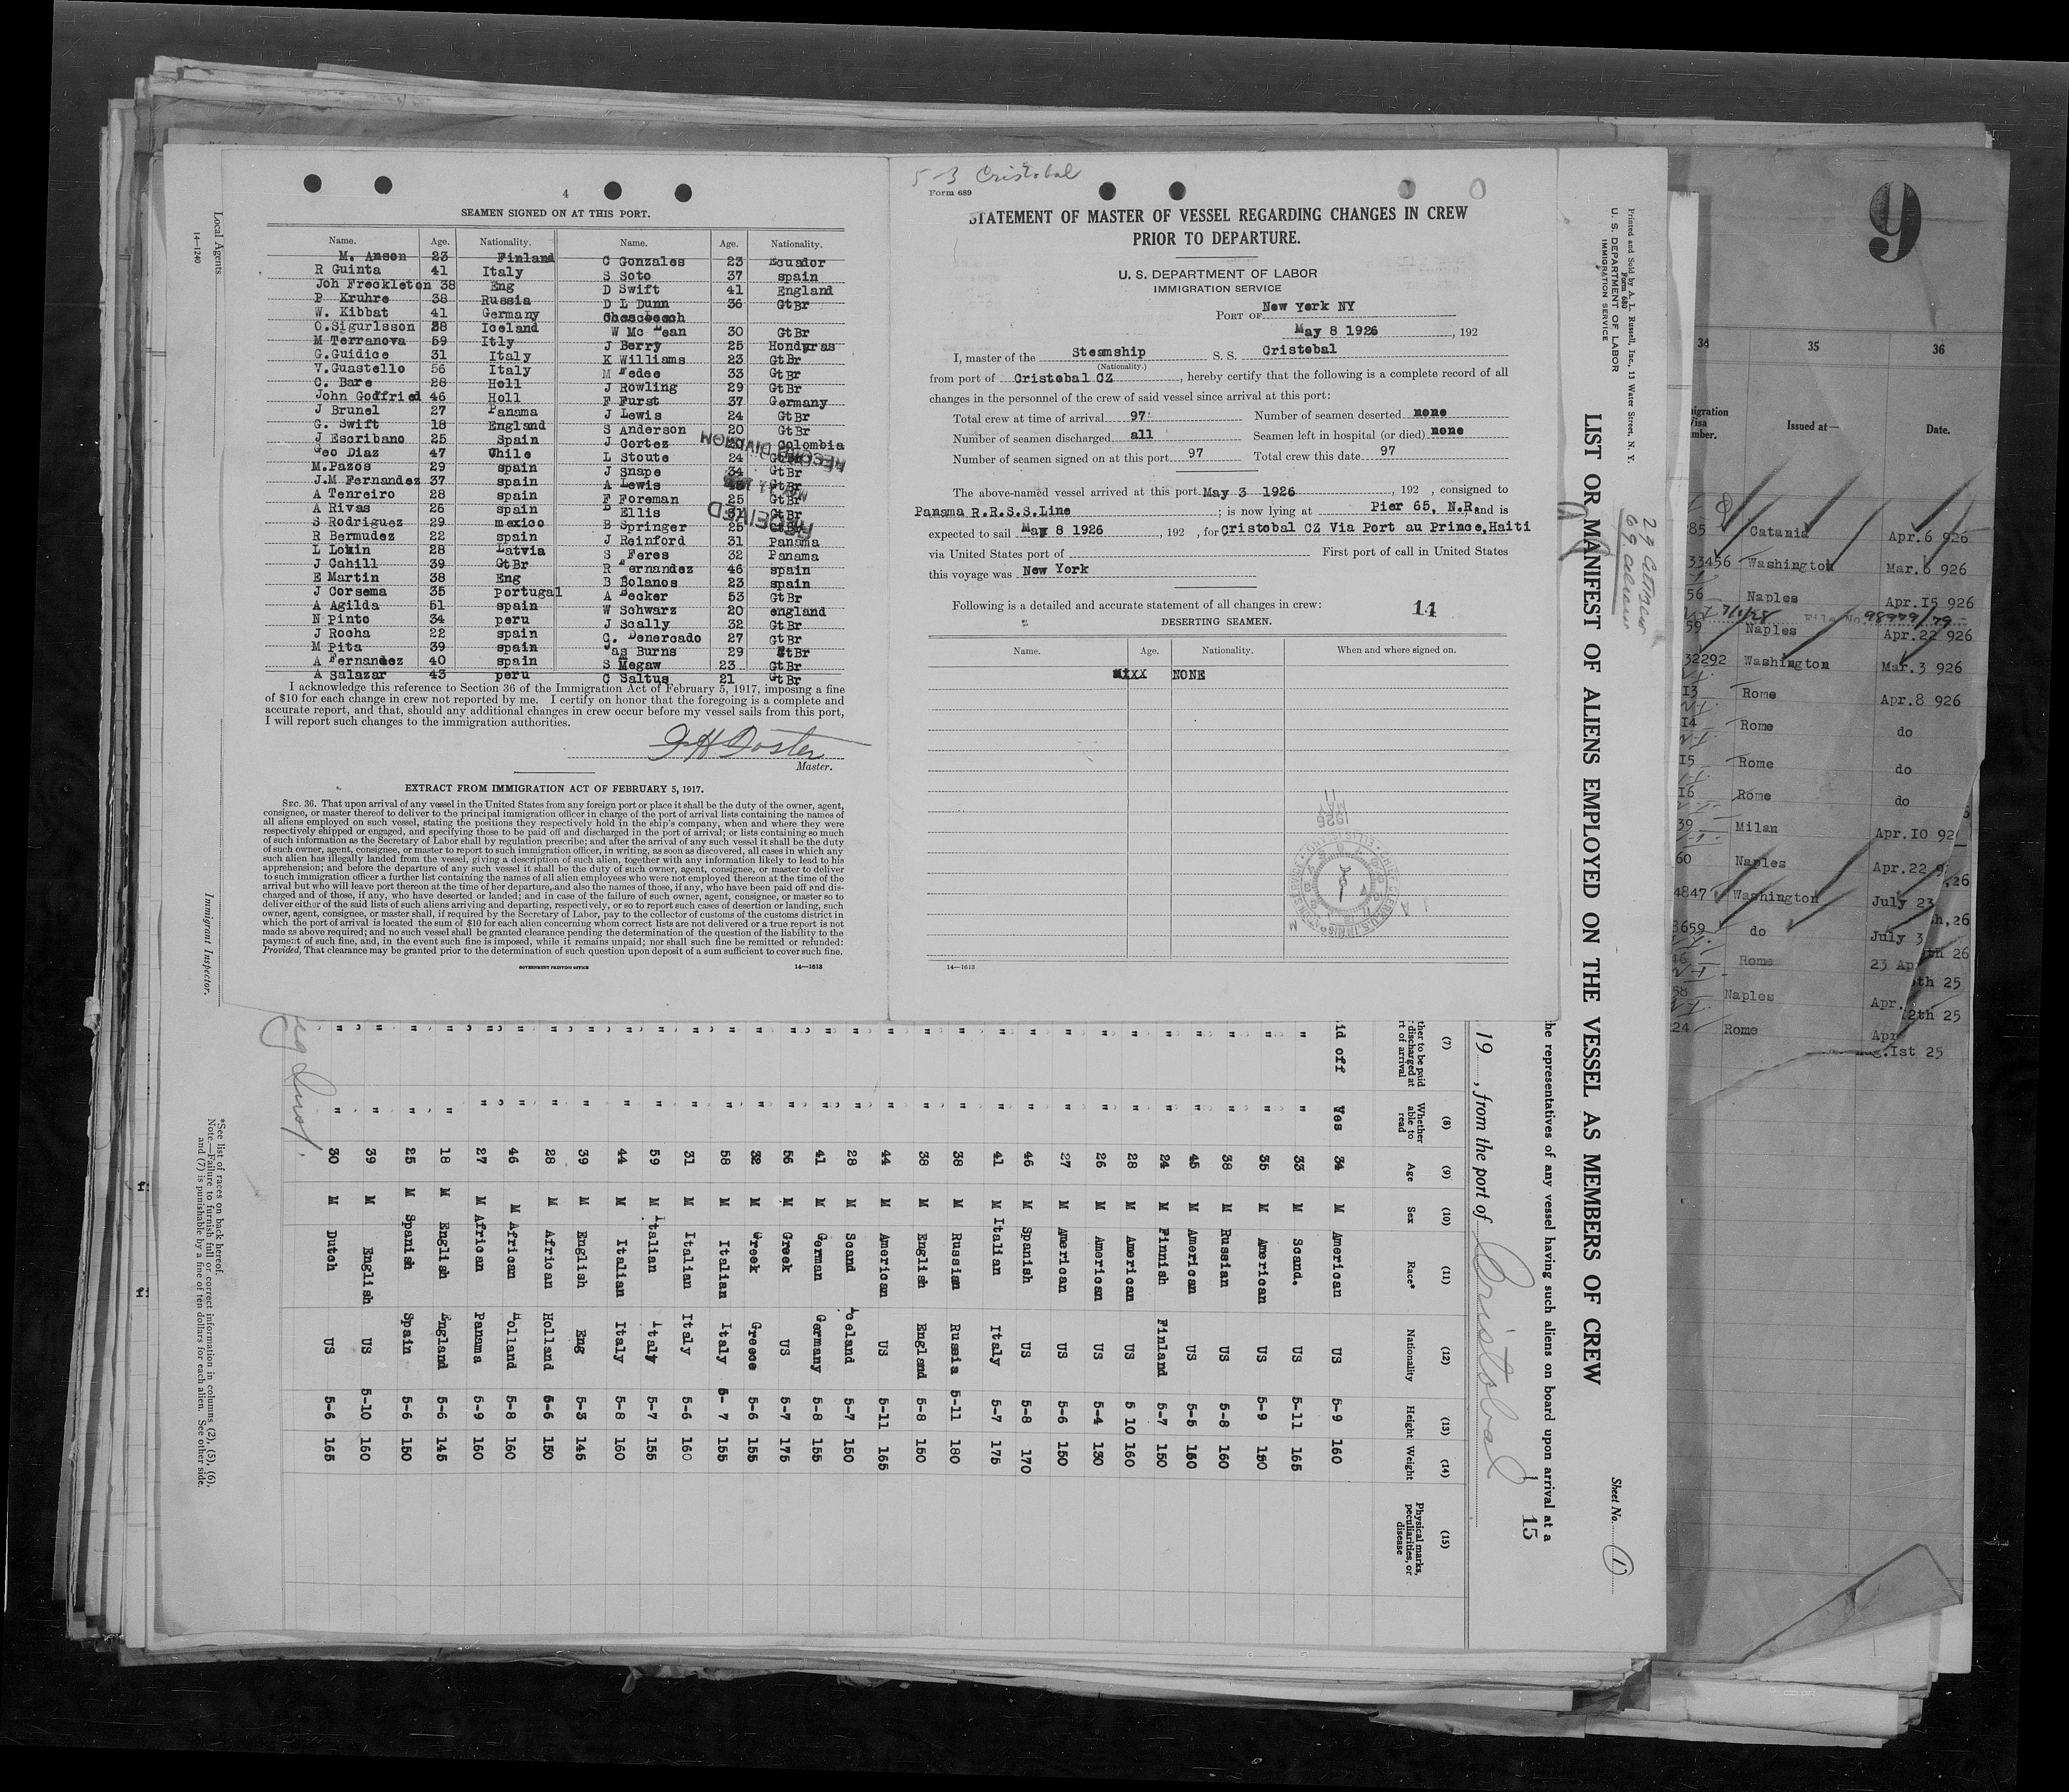 4
SEAMEN SIGNED ON AT THIS PORT.
Name. Age. Nationality. Name. Age. Nationality.
M. Anson 23 Finland
R Guinta 41 Italy
Joh Freckleton 38 Eng
P Kruhre 38 Russia
W. Kibbat 41 Germany
O.Sigurlsson 28 Iceland
M Terranova 59 Itly
G.Guidice 31 Italy
V.Guastello 56 Italy
C. Bare 28 Holl
John Godfried 46 Holl
J Brunel 27 Panama
G. Swift 18 England
J Escribano 25 Spain
Geo Diaz 47 Chile
M.Pazos 29 spain
J.M Fernandez 37 spain
A Tenreiro 28 spain
A Rivas 26 spain
S Rodriguez 29 mexico
R Bermudez 22 spain
L Lokin 28 Latvia
J Cahill 39 GtBr
E Martin 38 Eng
J Corsema 35 Portugal
A Agilda 51 spain
N Pinto 34 peru
J Rocha 22 spain
M Pita 39 spain
A Fernandez 40 spain
A Salazar 43 peru
C Gonzales 23 Ecuador
S Soto 37 spain
D Swift 41 England
D L Dunn 36 GtBr
W Mc Lean 30 GtBr
J Berry 25 Honduras
K Williams 23 GtBr
M Fedee 33 GtBr
J Rowling 29 GtBr
F Furst 37 Germany
J Lewis 24 GtBr
S Anderson 20 GtBr
J Cortez Colombia
L Stoute 24
J Snape 34 GtBr
A Lewis GtBr
F Foreman 25 GtBr
Ellis GtBr
B Springer 25 GtBr
J Reinford 31 Panama
S Feres 32 Panama
R Fernandez 46 spain
B Bolanos 23 spain
A Becker 53 GtBr
W Schwarz 20 england
J Scally 32 GtBr
C. Denercado 27 GtBr
Jas Burns 29 GtBr
S Megaw 23 GtBr
C Saltus 21 GtBr
RECORD DIVISION
RECEIVED
I acknowledge this reference to Section 36 of the Immigration Act of February 5, 1917, imposing a fine
of $10 for each change in crew not reported by me. I certify on honor that the foregoing is a complete and
accurate report, and that, should any additional changes in crew occur before my vessel sails from this port,
I will report such changes to the immigration authorities.
Master.
EXTRACT FROM IMMIGRATION ACT OF FEBRUARY 5, 1917.
SEC. 36. That upon arrival of any vessel in the United States from any foreign port or place it shall be the duty of the owner, agent,
consignee, or master thereof to deliver to the principal immigration officer in charge of the port of arrival lists containing the names of
all aliens employed on such vessel, stating the positions they respectively hold in the ship's company, when and where they were
respectively shipped or engaged, and specifying those to be paid off and discharged in the port of arrival; or lists containing so much
of such information as the Secretary of Labor shall by regulation prescribe; and after the arrival of any such vessel it shall be the duty
of such owner, agent, consignee, or master to report to such immigration officer, in writing, as soon as discovered, all cases in which any
such alien has illegally landed from the vessel, giving a description of such alien, together with any information likely to lead to his
apprehension; and before the departure of any such vessel it shall be the duty of such owner, agent, consignee, or master to deliver
to such immigration officer a further list containing the names of all alien employees who were not employed thereon at the time of the
arrival but who will leave port thereon at the time of her departure, and also the names of those, if any, who have been paid off and dis-
charged and of those, if any, who have deserted or landed; and in case of the failure of such owner, agent, consignee, or master so to
deliver either of the said lists of such aliens arriving and departing, respectively, or so to report such cases of desertion or landing, such
owner, agent, consignee, or master shall, if required by the Secretary of Labor, pay to the collector of customs of the customs district in
which the port of arrival is located the sum of $10 for each alien concerning whom correct lists are not delivered or a true report is not
made as above required; and no such vessel shall be granted clearance pending the determination of the question of the liability to the
payment of such fine, and, in the event such fine is imposed, while it remains unpaid; nor shall such fine be remitted or refunded:
Provided, That clearance may be granted prior to the determination of such question upon deposit of a sum sufficient to cover such fine.
GOVERNMENT PRINTING OFFICE 14—1613
5-3 Cristobal
Form 689
STATEMENT OF MASTER OF VESSEL REGARDING CHANGES IN CREW
PRIOR TO DEPARTURE.
U. S. DEPARTMENT OF LABOR
IMMIGRATION SERVICE
PORT OF New York NY
May 8 1926, 192
I, master of the Steamship S. S. Cristobal
(Nationality.)
from port of Cristobal CZ, hereby certify that the following is a complete record of all
changes in the personnel of the crew of said vessel since arrival at this port:
Total crew at time of arrival 97 Number of seamen deserted none
Number of seamen discharged all Seamen left in hospital (or died) none
Number of seamen signed on at this port 97 Total crew this date 97
The above-named vessel arrived at this port May 3 1926, 192 , consigned to
Panama R.R.S.S.Line ; is now lying at Pier 65, N.R, and is
expected to sail May 8 1926, 192 , for Cristobal CZ Via Port au Prince,Haiti
via United States port of First port of call in United States
this voyage was New York
Following is a detailed and accurate statement of all changes in crew: 14
DESERTING SEAMEN.
Name. Age. Nationality. When and where signed on.
NONE
MAY 11 1926
14—1613
Printed and Sold by A. L. Russell, Inc., 13 Water Street, N. Y.
Form 680
U. S. DEPARTMENT OF LABOR
IMMIGRATION SERVICE
Sheet No. 1
LIST OR MANIFEST OF ALIENS EMPLOYED ON THE VESSEL AS MEMBERS OF CREW
the representatives of any vessel having such aliens on board upon arrival at a
15
19 , from the port of Cristobal
(7) (8) (9) (10) (11) (12) (13) (14) (15)
Whether able to read Age Sex Race* Nationality Height Weight Physical marks, peculiarities, or disease
id off Yes 34 M American US 5-9 160
" " 33 M Scand. US 5-11 165
" " 35 M American US 5-9 150
" " 38 M Russian US 5-8 160
" " 45 M American US 5-5 150
" " 24 M Finnish Finland 5-7 150
" " 28 M American US 5 10 160
" " 26 M American US 5-4 130
" " 27 M American US 5-6 150
" " 46 M Spanish US 5-8 170
" " 41 M Italian Italy 5-7 175
" " 38 M Russian Russia 5-11 180
" " 38 M English England 5-8 150
" " 44 M American US 5-11 165
" " 28 M Scand Iceland 5-7 150
" " 41 M German Germany 5-8 155
" " 56 M Greek US 5-7 175
" " 32 M Greek Greece 5-6 155
" " 58 M Italian Italy 5- 7 155
" " 31 M Italian Italy 5-6 160
" " 59 M Italian Italy 5-7 155
" " 44 M Italian Italy 5-8 160
" " 39 M English Eng 5-3 145
" " 28 M African Holland 5-6 150
" " 46 M African Holland 5-8 160
" " 27 M African Panama 5-9 160
" " 18 M English England 5-6 145
" " 25 M Spanish Spain 5-6 150
" " 39 M English US 5-10 160
" " 30 M Dutch US 5-6 165
*See list of races on back hereof.
Note.—Failure to furnish full or correct information in columns (2), (5), (6),
and (7) is punishable by a fine of ten dollars for each alien. See other side.
Local Agents
14—1240
Immigrant Inspector.
9
34 35 36
Issued at— Date.
Catania Apr.6 926
33456 Washington Mar.6 926
56 Naples Apr.15 926
59 Naples Apr.22 926
32292 Washington Mar.3 926
I3 Rome Apr.8 926
I4 Rome do
I5 Rome do
I6 Rome do
39 Milan Apr.10 92
60 Naples Apr.22 9
4847 Washington July 23
3659 do July 3
Rome 23 Ap
58 Naples Apr.
24 Rome Apr